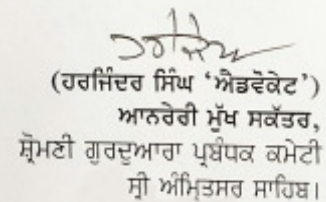 (ਹਰਜਿੰਦਰ ਸਿੰਘ ‘ਐਡਵੋਕੇਟ’)
ਆਨਰੇਰੀ ਮੁੱਖ ਸਕੱਤਰ,
ਸ਼੍ਰੋਮਣੀ ਗੁਰਦੁਆਰਾ ਪ੍ਰਬੰਧਕ ਕਮੇਟੀ
ਸ੍ਰੀ ਅੰਮ੍ਰਿਤਸਰ ਸਾਹਿਬ।